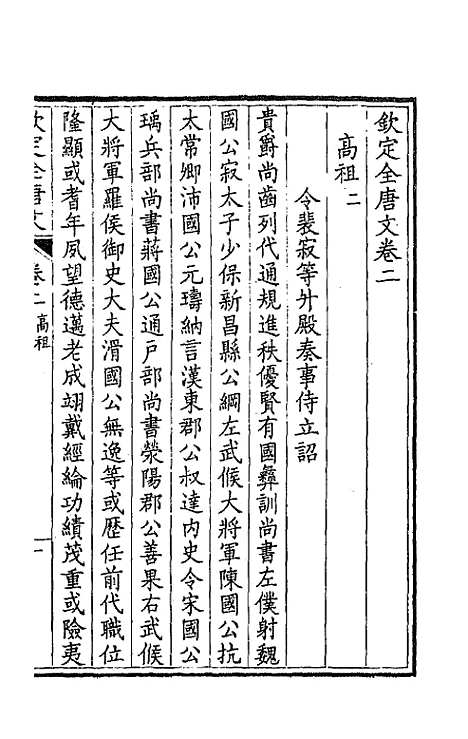 欽定全唐文卷二
高祖二
令裴寂等升殿奏事侍立詔
貴爵尚齒列代通規進秩優賢有國彝訓尚書左僕射魏
國公寂太子少保新昌縣公綱左武候大將軍陳國公抗
太常卿沛國公元璹納言漢東郡公叔達內史令宋國公
瑀兵部尚書蔣國公通戶部尚書滎陽郡公善果右武候
大將軍羅侯御史大夫滑國公無逸等或歷任前代職位
隆顯或耆年夙望德邁老成翊戴經綸功績茂重或險夷
欽定全唐文 卷二 高祖 一